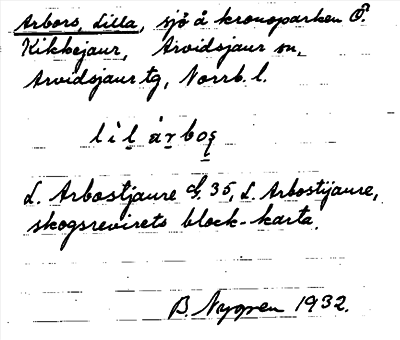 Arbors, Lilla, sjö å kronoparken Ö.
Kikkejaur, Arvidsjaur sn,
Arvidsjaur tg, Norrb. l.
lìlárbos
L. Arbostjaure G. 35, L. Arbostijaure,
skogsrevirets block-karta.
B. Nygren 1932.